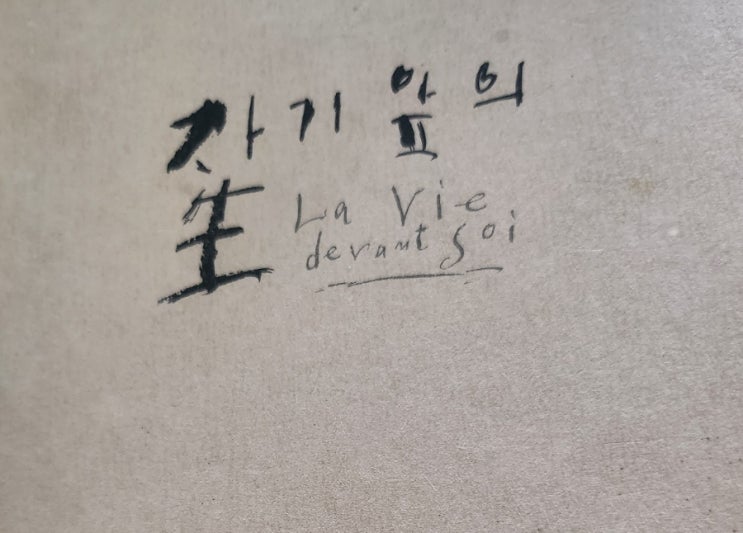 자기 앞의
生 La Vie
devant soi